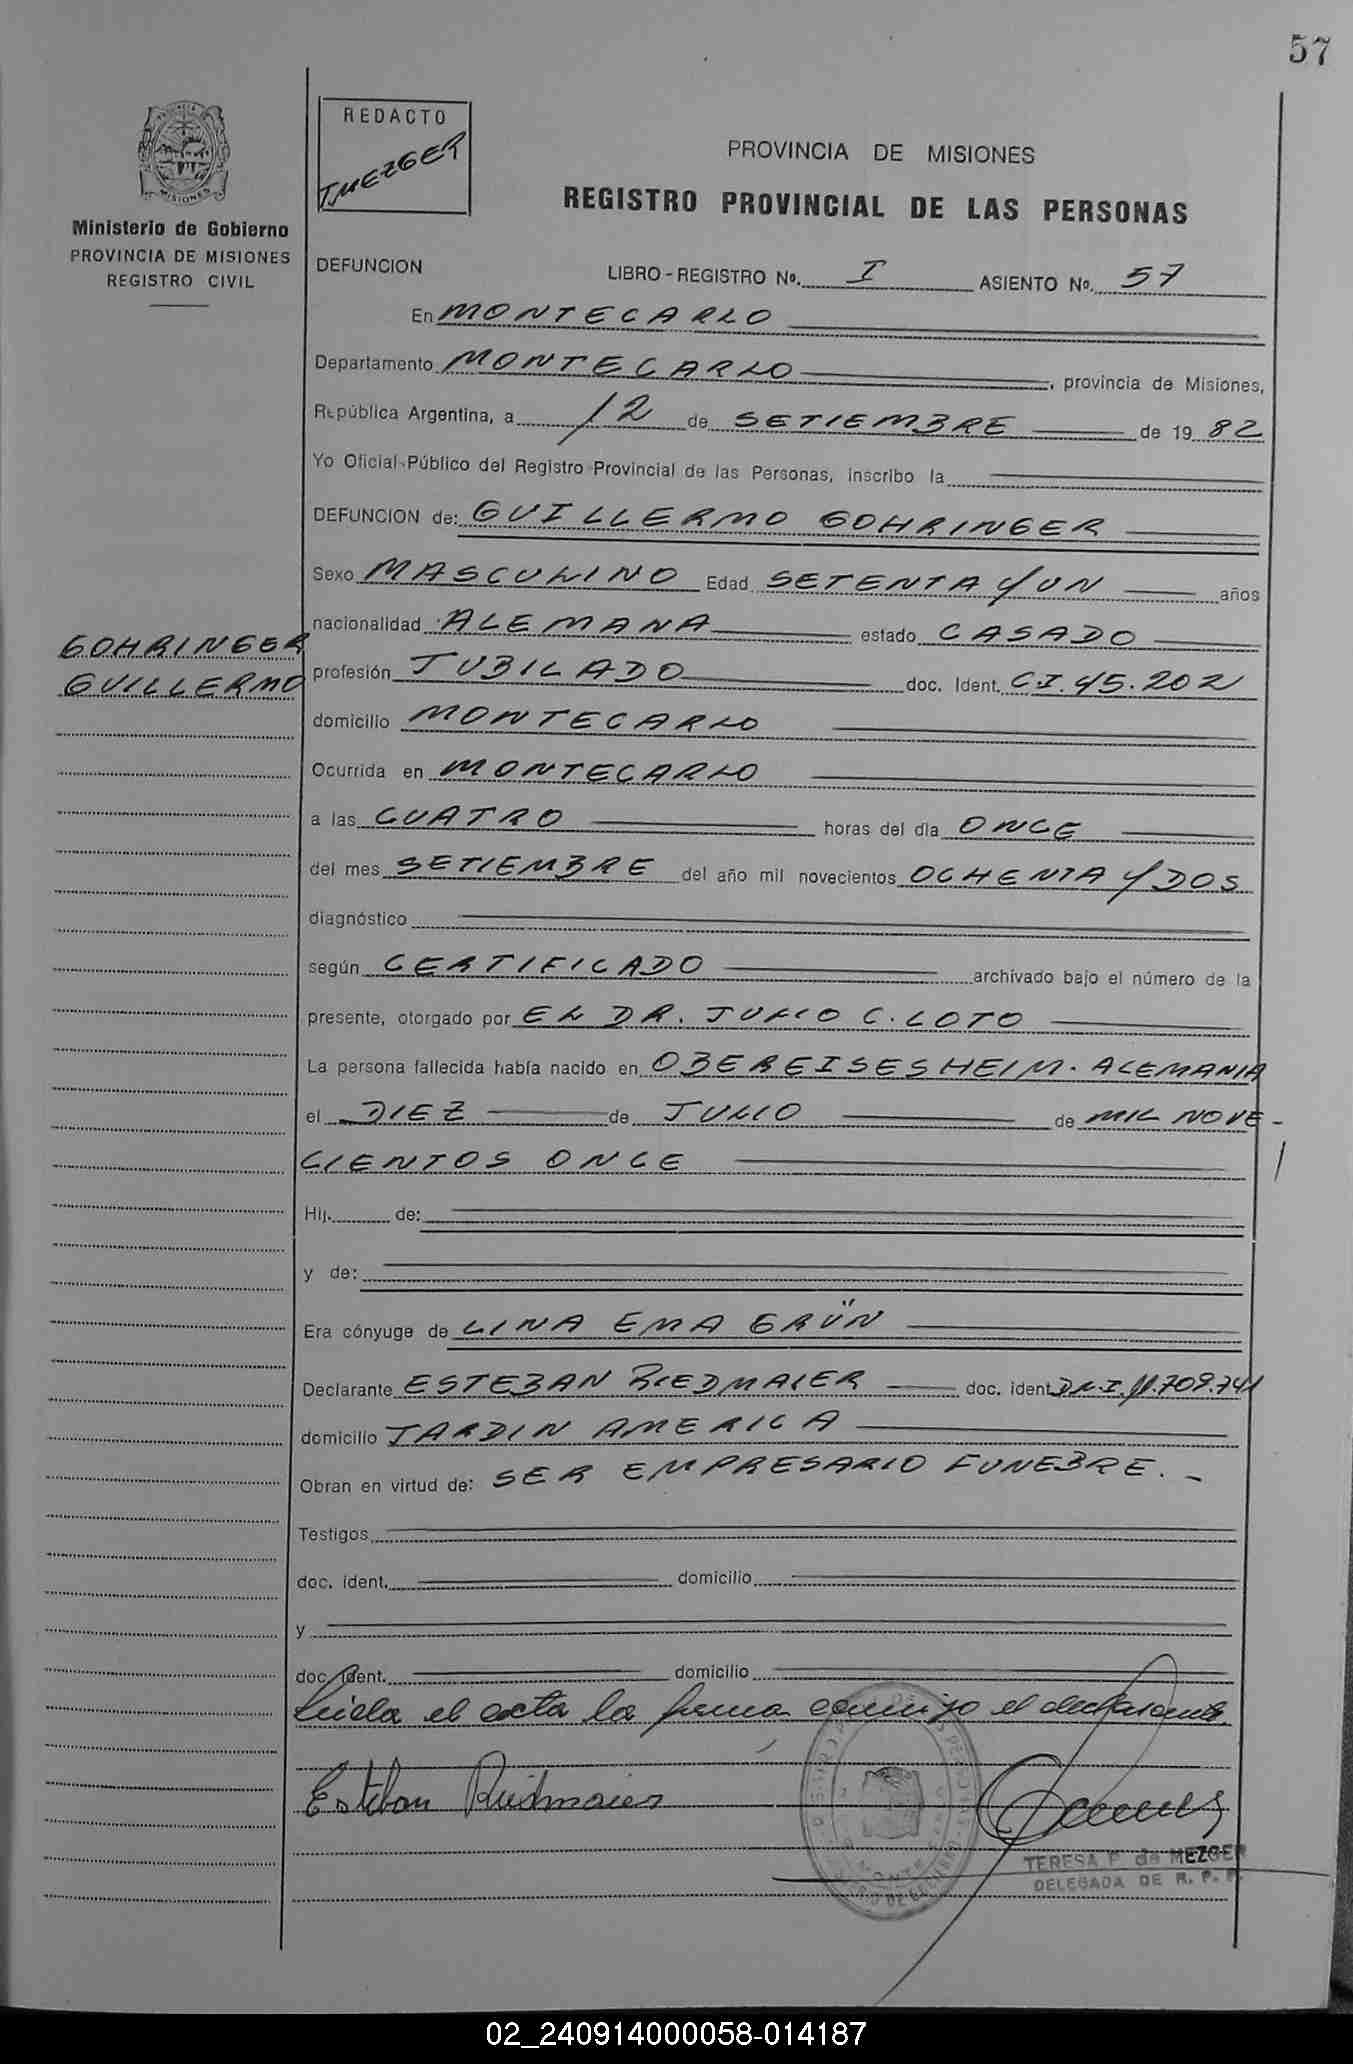 57
PROVINCIA DE
MISIONES
Ministerio de Gobierno
PROVINCIA DE MISIONES
REGISTRO CIVIL
REDACTO
T.MEZGER
PROVINCIA DE MISIONES
REGISTRO PROVINCIAL DE LAS PERSONAS
DEFUNCION LIBRO - REGISTRO Nº. I ASIENTO Nº. 57
En MONTECARLO
Departamento MONTECARLO, provincia de Misiones,
República Argentina, a 12 de SETIEMBRE de 19 82
Yo Oficial Público del Registro Provincial de las Personas, inscribo la
DEFUNCION de: GUILLERMO GOHRINGER
Sexo MASCULINO Edad SETENTA Y UN años
nacionalidad ALEMANA estado CASADO
GOHRINGER
GUILLERMO
profesión JUBILADO doc. Ident. C.I. 45.202
domicilio MONTECARLO
Ocurrida en MONTECARLO
a las CUATRO horas del día ONCE
del mes SETIEMBRE del año mil novecientos OCHENTA Y DOS
diagnóstico
según CERTIFICADO archivado bajo el número de la
presente, otorgado por EL DR. JULIO C. LOTO
La persona fallecida había nacido en OBEREISESHEIM. ALEMANIA
el DIEZ de JULIO de MIL NOVE-
CIENTOS ONCE
Hij. de:
y de:
Era cónyuge de LINA EMA GRÜN
Declarante ESTEBAN RIEDMAIER doc. ident D.N.I. 11.709.741
domicilio JARDIN AMERICA
Obran en virtud de: SER EMPRESARIO FUNEBRE. -
Testigos
doc. ident. domicilio
y
doc. ident. domicilio
Leida el acta la firma conmigo el declarante
Esteban Riedmaier
TERESA P. de MEZGER
DELEGADA DE R. P. P.
02_240914000058-014187